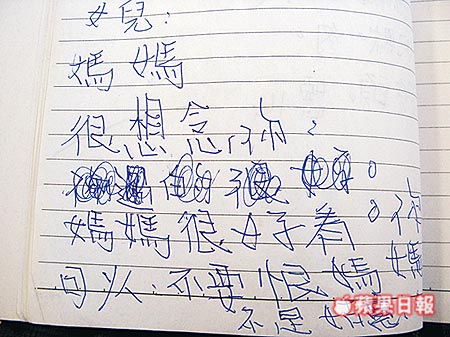 女兒:
媽媽
很想念你:
媽媽很好看。你
可以:不要恨媽媽
不是
蘋果日報